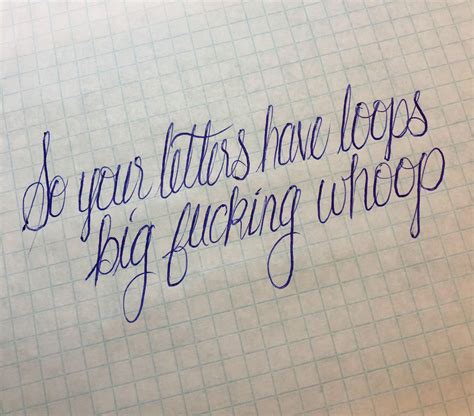 So your letters have loops
big fucking whoop